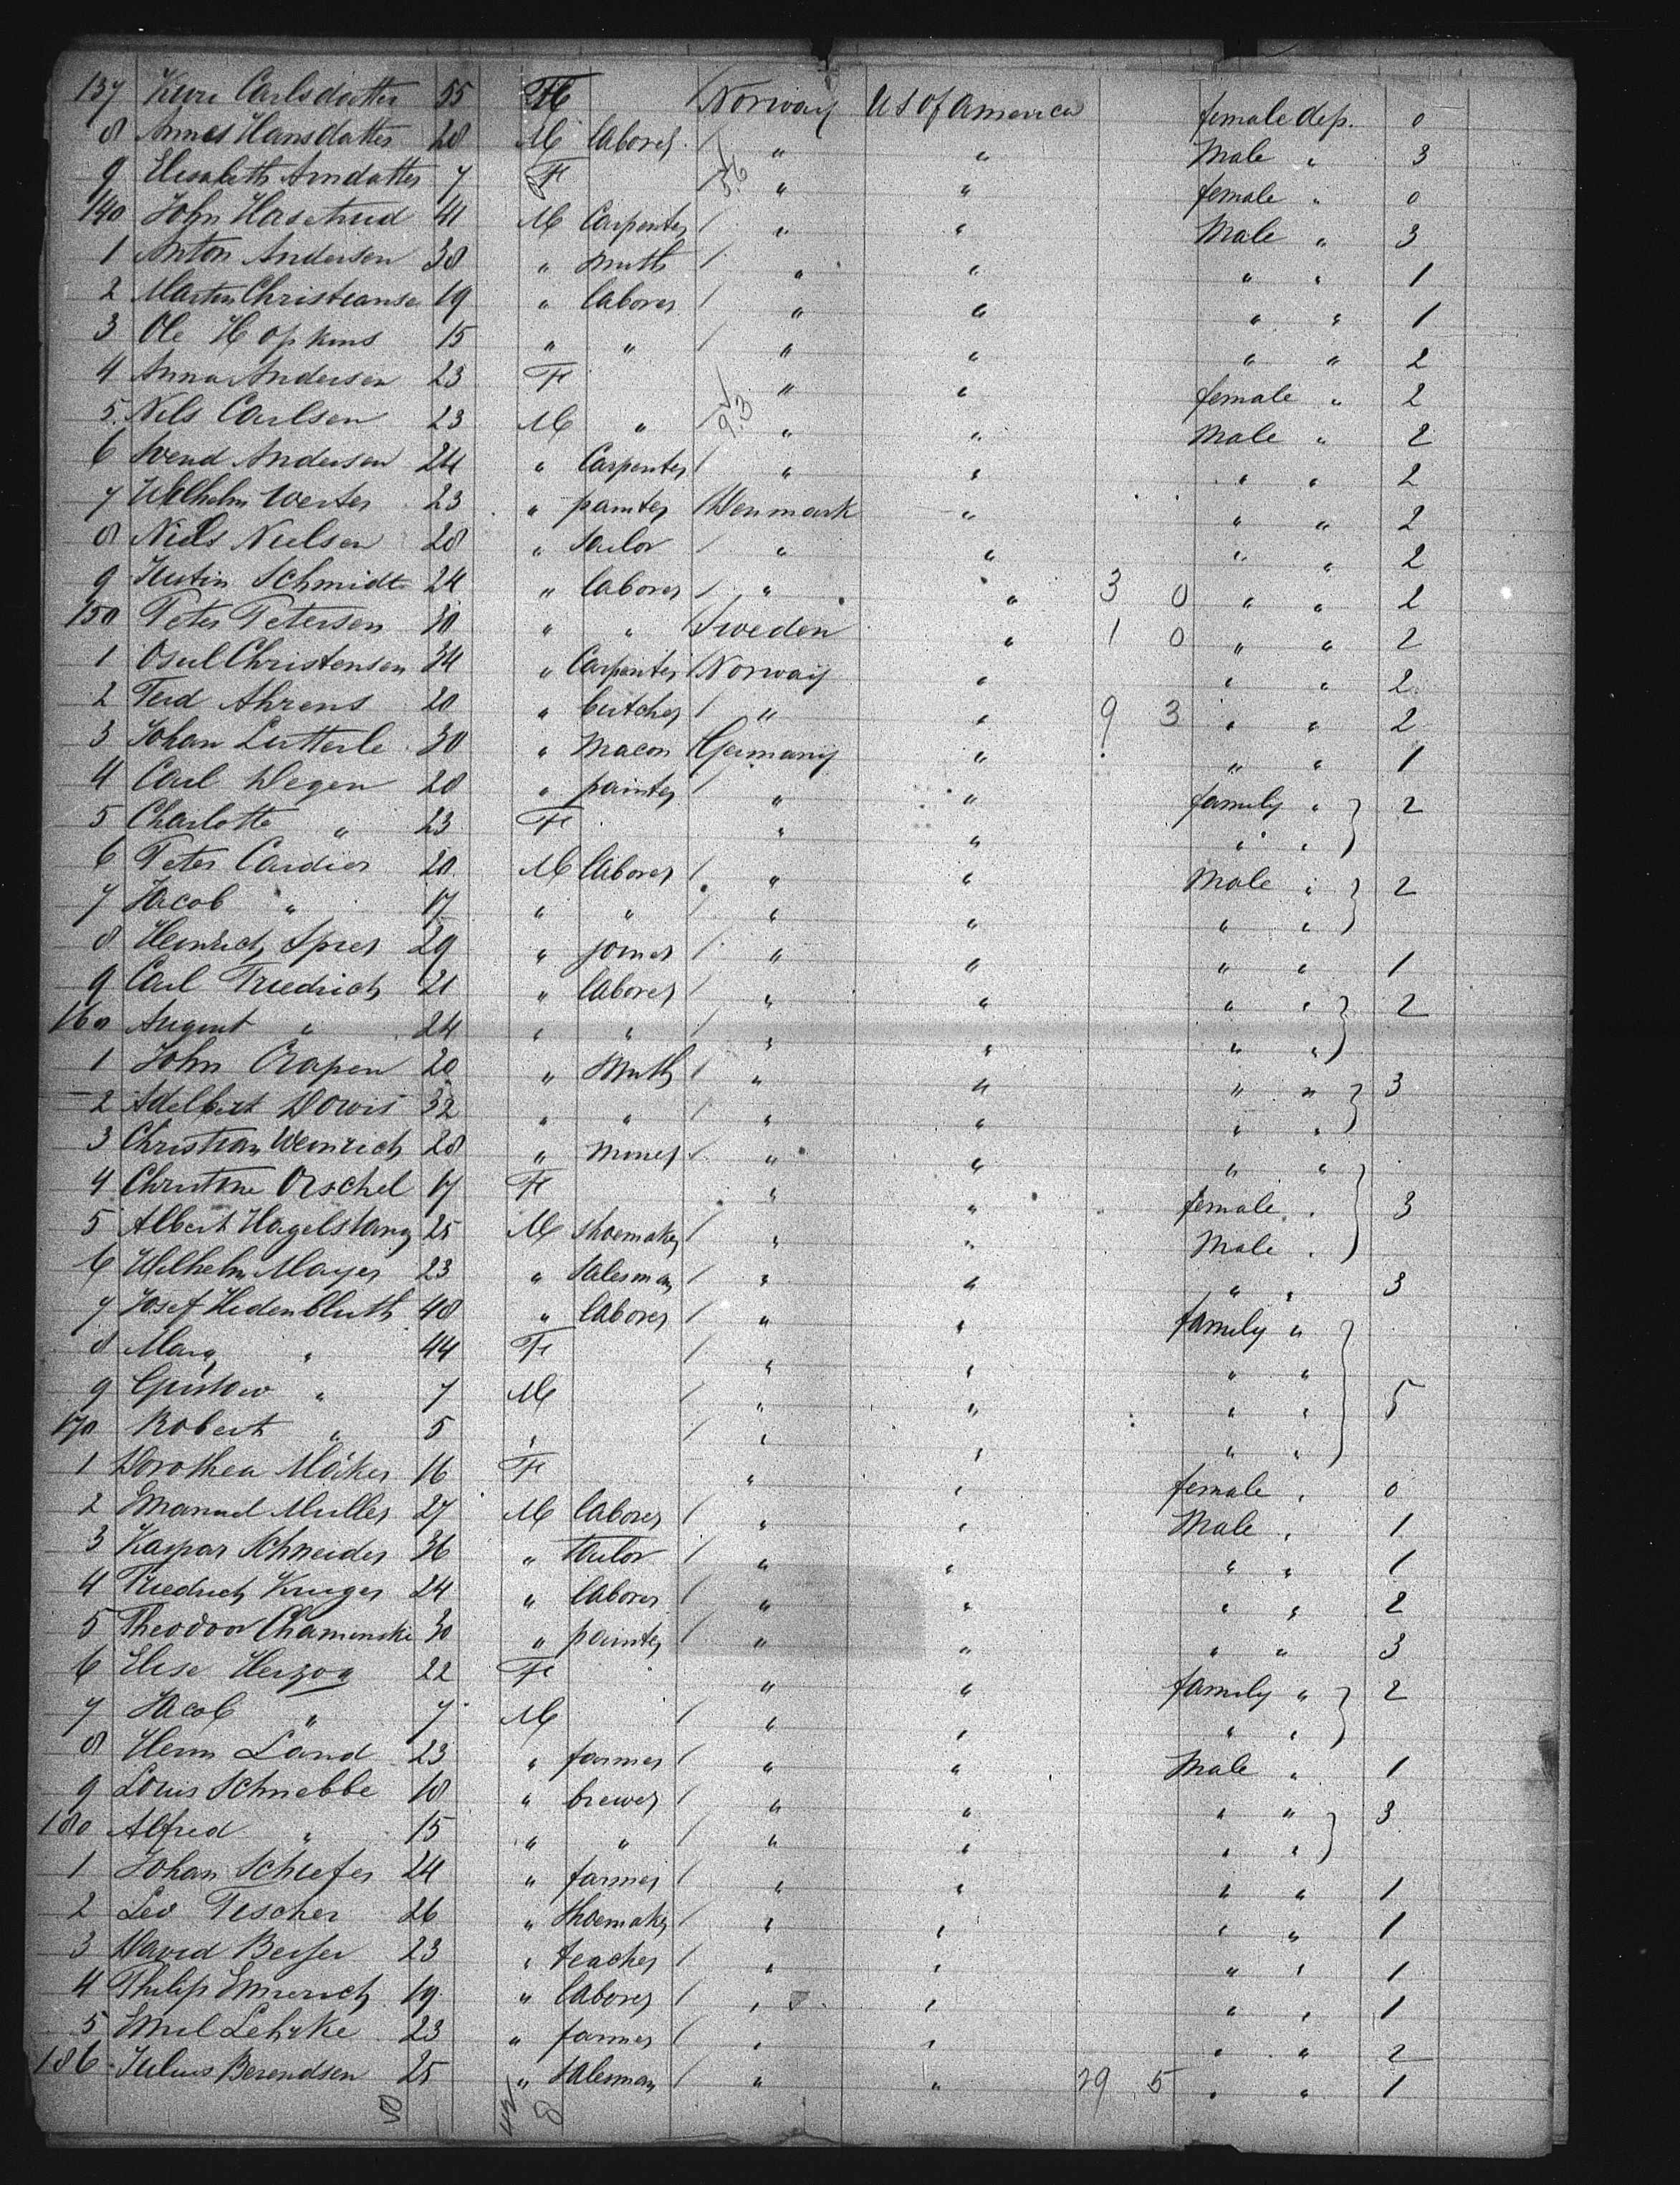 137 Kari Carlsdatter 55 F Norway U S of America female dep. 0
8 Annes Hansdatter 28 M laborer / " " Male " 3
9 Elisabeth Arndatter 7 F / " " female " 0
140 John Hasetrud 41 M Carpenter / " " Male " 3
1 Anton Andersen 38 " Smith / " " " " 1
2 Martin Christianse 19 " laborer / " " " " 1
3 Ole Hopkins 15 " " / " " " " 2
4 Anna Andersen 23 F " " female " 2
5 Nils Carlsen 23 M " / 9.3 " " Male " 2
6 Svend Andersen 24 " Carpenter / " " " " 2
7 Wilhelm Werter 23 " painter / Denmark " " " 2
8 Niels Nielsen 28 " tailor / " " " " 2
9 Justin Schmidt 24 " laborer / " " 3 0 " " 2
150 Peter Petersen 30 " " / Sweden " 1 0 " " 2
1 Osul Christensen 34 " Carpenter / Norway " " " 2
2 Ferd Ahrens 20 " butcher / " " 9 3 " " 2
3 Johan Lutterle 30 " Macon / Germany " " " 1
4 Carl Degen 28 " painter / " " family " } 2
5 Charlotte " 23 F " " " "
6 Peter Cardier 20 M laborer / " " Male " } 2
7 Jacob " 17 " " / " " " "
8 Heinrich Spier 29 " joiner / " " " " 1
9 Carl Friedrich 21 " laborer / " " " " } 2
160 August " 24 " " / " " " "
1 John Crapen 20 " Smith / " " " " } 3
2 Adelbert Dowis 32 " " / " " " "
3 Christian Weinrich 28 " Miner / " " " "
4 Christine Orschel 17 F " " female " } 3
5 Albert Hagelstang 25 M shoemaker / " " Male "
6 Wilhelm Mayer 23 " Salesman / " " " " 3
7 Josef Hidenbluth 48 " laborer / " " family "
8 Marg " 44 F / " " " "
9 Gustaw " 7 M / " " " " } 5
170 Robert " 5 " / " " " "
1 Dorothea Mäker 16 F " " female " 0
2 Emanuel Muller 27 M laborer / " " Male " 1
3 Kaspar Schneider 36 " Tailor / " " " " 1
4 Friedrich Kruger 24 " laborer / " " " " 2
5 Theodor Chaminski 30 " painter / " " " " 3
6 Elise Herzog 22 F " " family " } 2
7 Jacob " 7 M / " " " "
8 Herm Land 23 " farmer / " " Male " 1
9 Louis Schnebbe 18 " brewer / " " " " } 3
180 Alfred " 15 " " / " " " "
1 Johan Schiefer 24 " farmer / " " " " 1
2 Leo Fischer 26 " Shoemaker / " " " " 1
3 David Beifer 23 " teacher / " " " " 1
4 Philip Emerich 19 " laborer / " " " " 1
5 Emil Lehrke 23 " farmer / " " " " 2
186 Julius Berendsen 25 " Salesman / " " 29 5 " " 1